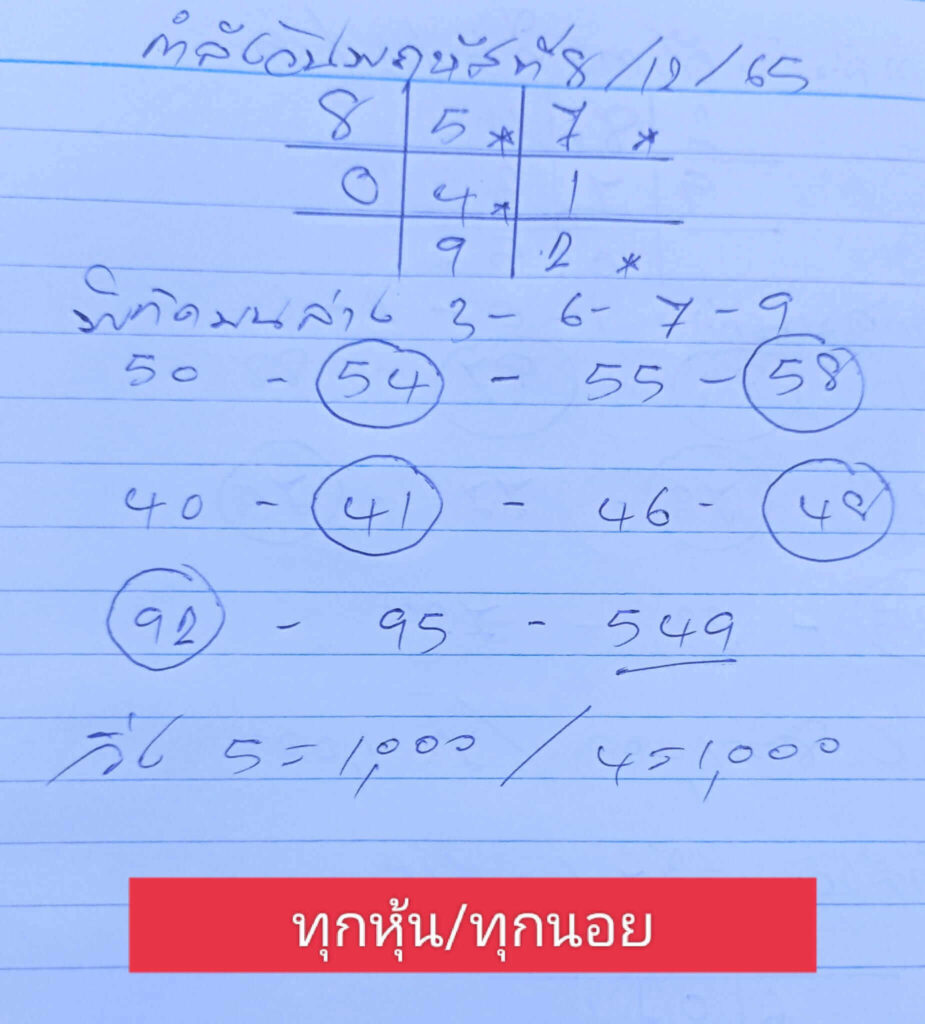 กำลังวันพฤหัสที่ 8/12/65
8 5* 7*
0 4* 1
9 2*
พิกัดบนล่าง 3-6-7-9
50 - 54 - 55 - 58
40 - 41 - 46 - 48
92 - 95 - 549
วิ่ง 5=1,000 / 4=1,000
ทุกหุ้น/ทุกนอย